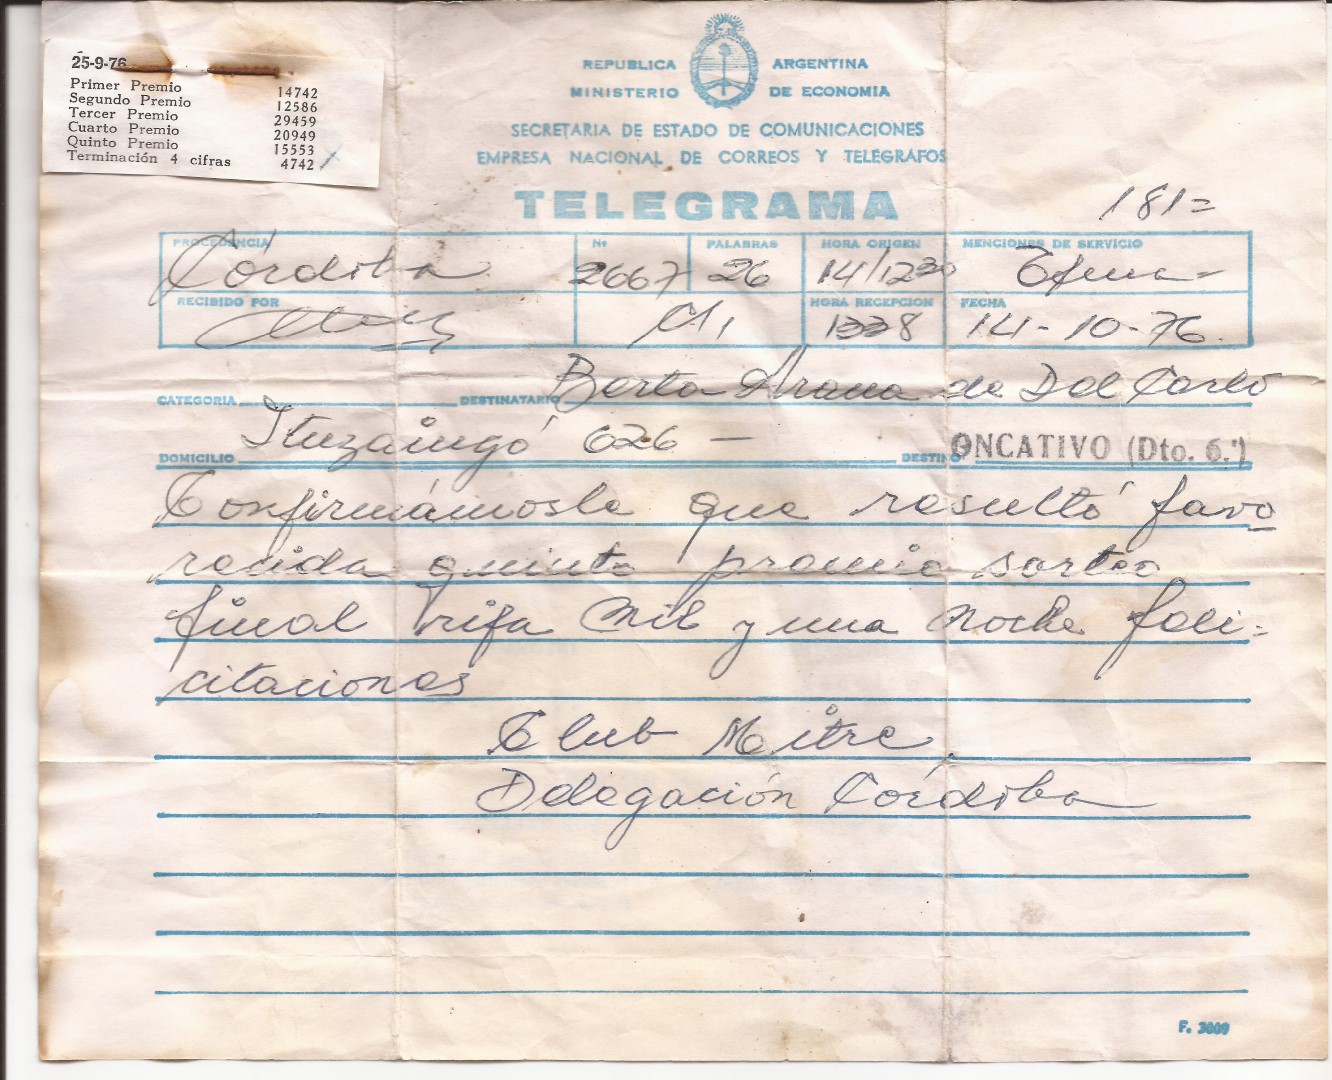 25-9-76
Primer Premio 14742
Segundo Premio 12586
Tercer Premio 29459
Cuarto Premio 20949
Quinto Premio 15553
Terminación 4 cifras 4742
REPUBLICA ARGENTINA
MINISTERIO DE ECONOMIA
SECRETARIA DE ESTADO DE COMUNICACIONES
EMPRESA NACIONAL DE CORREOS Y TELEGRAFOS
TELEGRAMA
181=
PROCEDENCIA Nº PALABRAS HORA ORIGEN MENCIONES DE SERVICIO
Córdoba 2667 26 14/1230
RECIBIDO POR HORA RECEPCION FECHA
1338 14-10-76.
Berta Arana de Del Carlo
CATEGORIA DESTINATARIO
Ituzaingó 626 -
DOMICILIO DESTINO ONCATIVO (Dto. 6.')
Confirmámosle que resultó favo
recida quinto premio sorteo
final rifa mil y una noche feli=
citaciones
Club Mitre
Delegación Córdoba
F. 3009